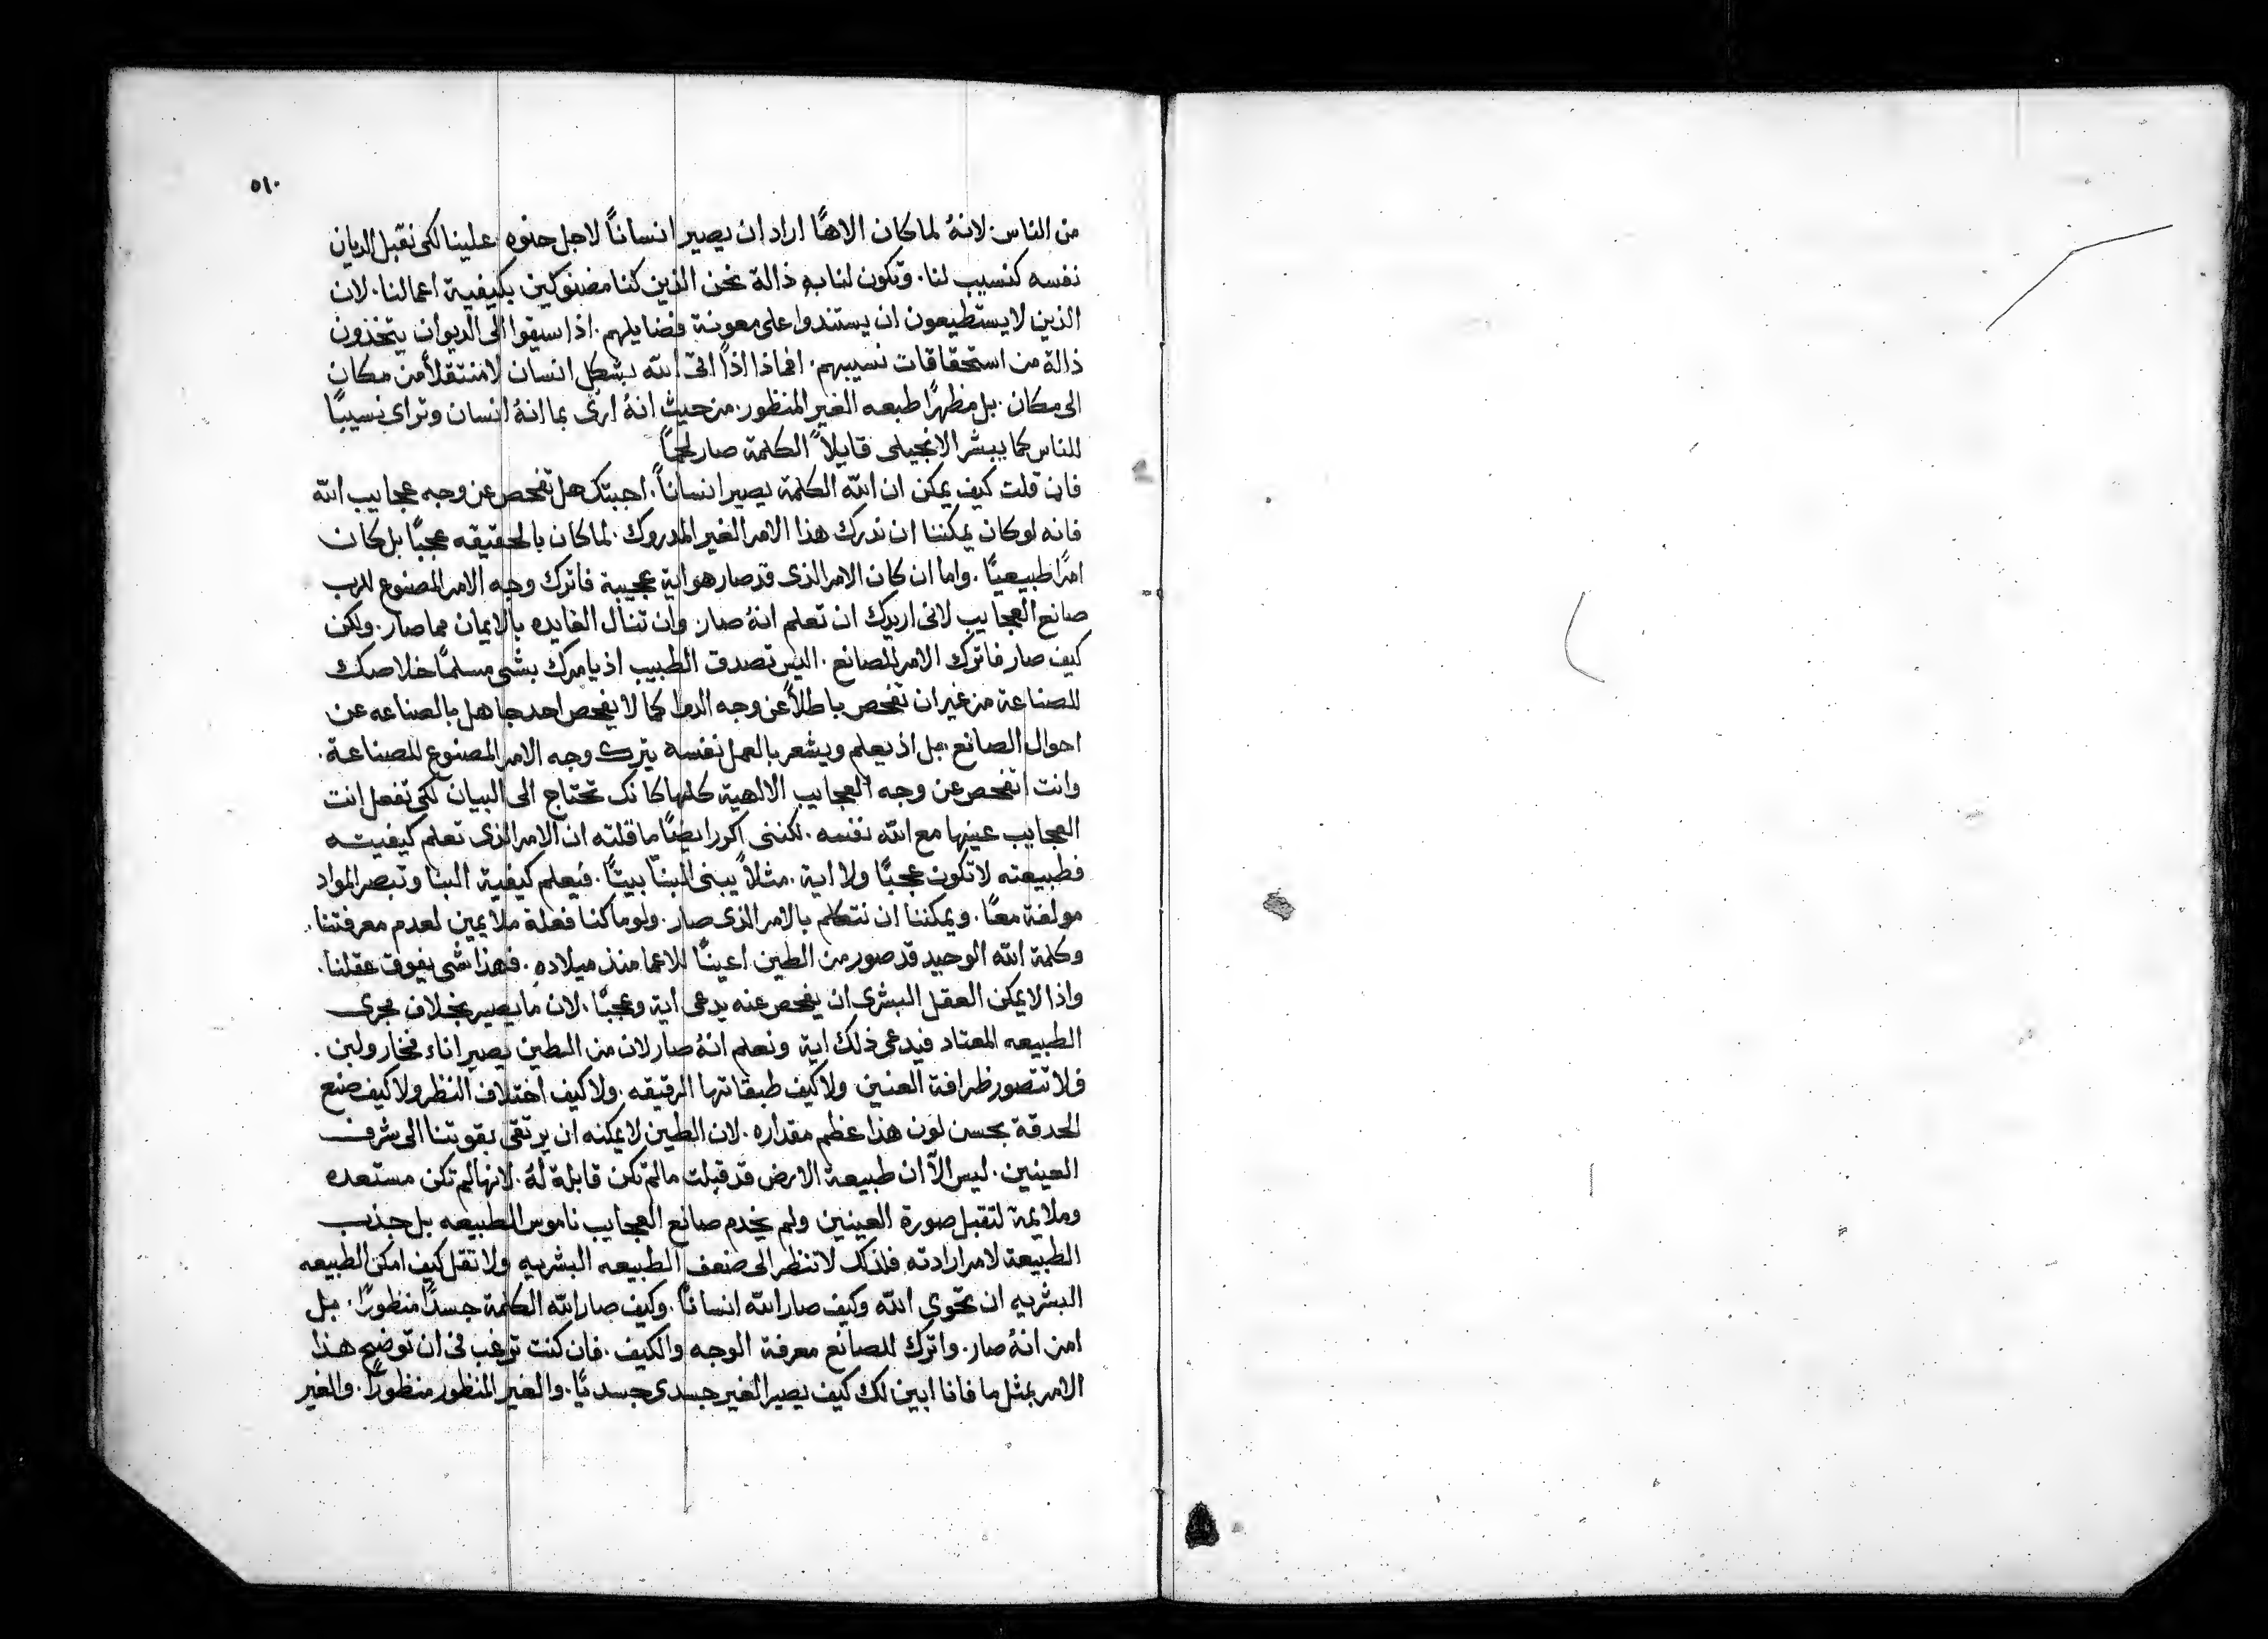 ٥١٠
من الناس. لانهُ لما كان الاهًا اراد ان يصير انسانًا لاجل حنوه علينا لكى نقبل الديان
نفسه كنسيب لنا. وتكون لنا به ذالة نحن الذين كنا مضنوكين بكيفية اعمالنا. لان
الذين لا يستطيعون ان يستندوا على معونة فضايلهم. اذا سيقوا الى الديوان يتخذون
ذالة من استحقاقات نسيبهم. افماذا اذًا اتى الله بشكل انسان لا منتقلاً من مكان
الى مكان. بل مظهرًا طبعه الغير المنظور. من حيث انهُ ارى بما انهُ انسان وتراى نسيبًا
للناس كما يبشر الانجيلى قايلاً الكلمة صار لحمًا
فان قلت كيف يمكن ان الله الكلمة يصير انسانًا. اجبتك هل تفحص عن وجه عجايب الله
فانه لو كان يمكننا ان ندرك هذا الامر الغير المدروك. لما كان بالحقيقه عجبًا بل كان
امرًا طبيعيًا. واما ان كان الامر الذى قد صار هو اية عجيبة فاترك وجه الامر المصنوع للرب
صانع العجايب لانى اريدك ان تعلم انهُ صار. وان تنال الفايده بالايمان مما صار. ولكن
كيف صار فاترك الامر للصانع. اليس تصدق الطبيب اذ يامرك بشى مسلمًا خلاصك
للصناعة من غير ان تفحص باطلاً عن وجه الدوا كما لا يفحص احد جاهل بالصناعه عن
احوال الصانع. بل اذ يعلم ويشعر بالعمل نفسه يترك وجه الامر المصنوع للصناعة.
وانت اتفحص عن وجه العجايب الالهية كلها كانك تحتاج الى البيان لكى تفعل انت
العجايب عينها مع الله نفسه. لكننى اكرر ايضًا ما قلته ان الامر الذى تعلم كيفيته
فطبيعته لا تكون عجبًا ولا اية. مثلاً يبنى البنّا بيتًا. فيعلم كيفية البنا وتبصر المواد
مولفة معًا. ويمكننا ان نتكلم بالامر الذى صار. ولو ما كنا فعلة ملايمين لعدم معرفتنا.
وكلمة الله الوحيد قد صور من الطين اعينًا للاعما منذ ميلاده. فهذا شى يفوق عقلنا.
واذا لا يمكن العقل البشرى ان يفحص عنه يدعى اية وعجبًا. لان ما يصير بخلاف مجرى
الطبيعه المعتاد فيدعى ذلك اية ونعلم انهُ صار لان من الطين يصير اناء فخار ولبن.
فلا تتصور ظرافة العنين ولا كيف طبقاتها الرقيقه. ولا كيف اختلاف النظر ولا كيف صنع
الحدقة بحسن لون هذا عظم مقداره. لان الطين لا يمكنه ان يرتقى بقوتنا الى شرف
العينين. ليس الّا ان طبيعة الارض قد قبلت ما لم تكن قابلة لهُ. لانها لم تكن مستعده
وملايمة لتقبل صورة العينين ولم يخدم صانع العجايب ناموس الطبيعه بل جذب
الطبيعة لامر ارادته فلذلك لا تنظر الى ضعف الطبيعه البشريه ولا تقل كيف امكن الطبيعه
البشريه ان تحوى الله وكيف صار الله انسانًا. وكيف صار الله الكلمة جسدًا منظورًا. بل
امن انهُ صار. واترك للصانع معرفة الوجه والكيف. فان كنت ترغب فى ان توضح هذا
الامر بمثل ما فانا ابين لك كيف يصير الغير جسدى جسديًا. والغير المنظور منظورًا. والغير